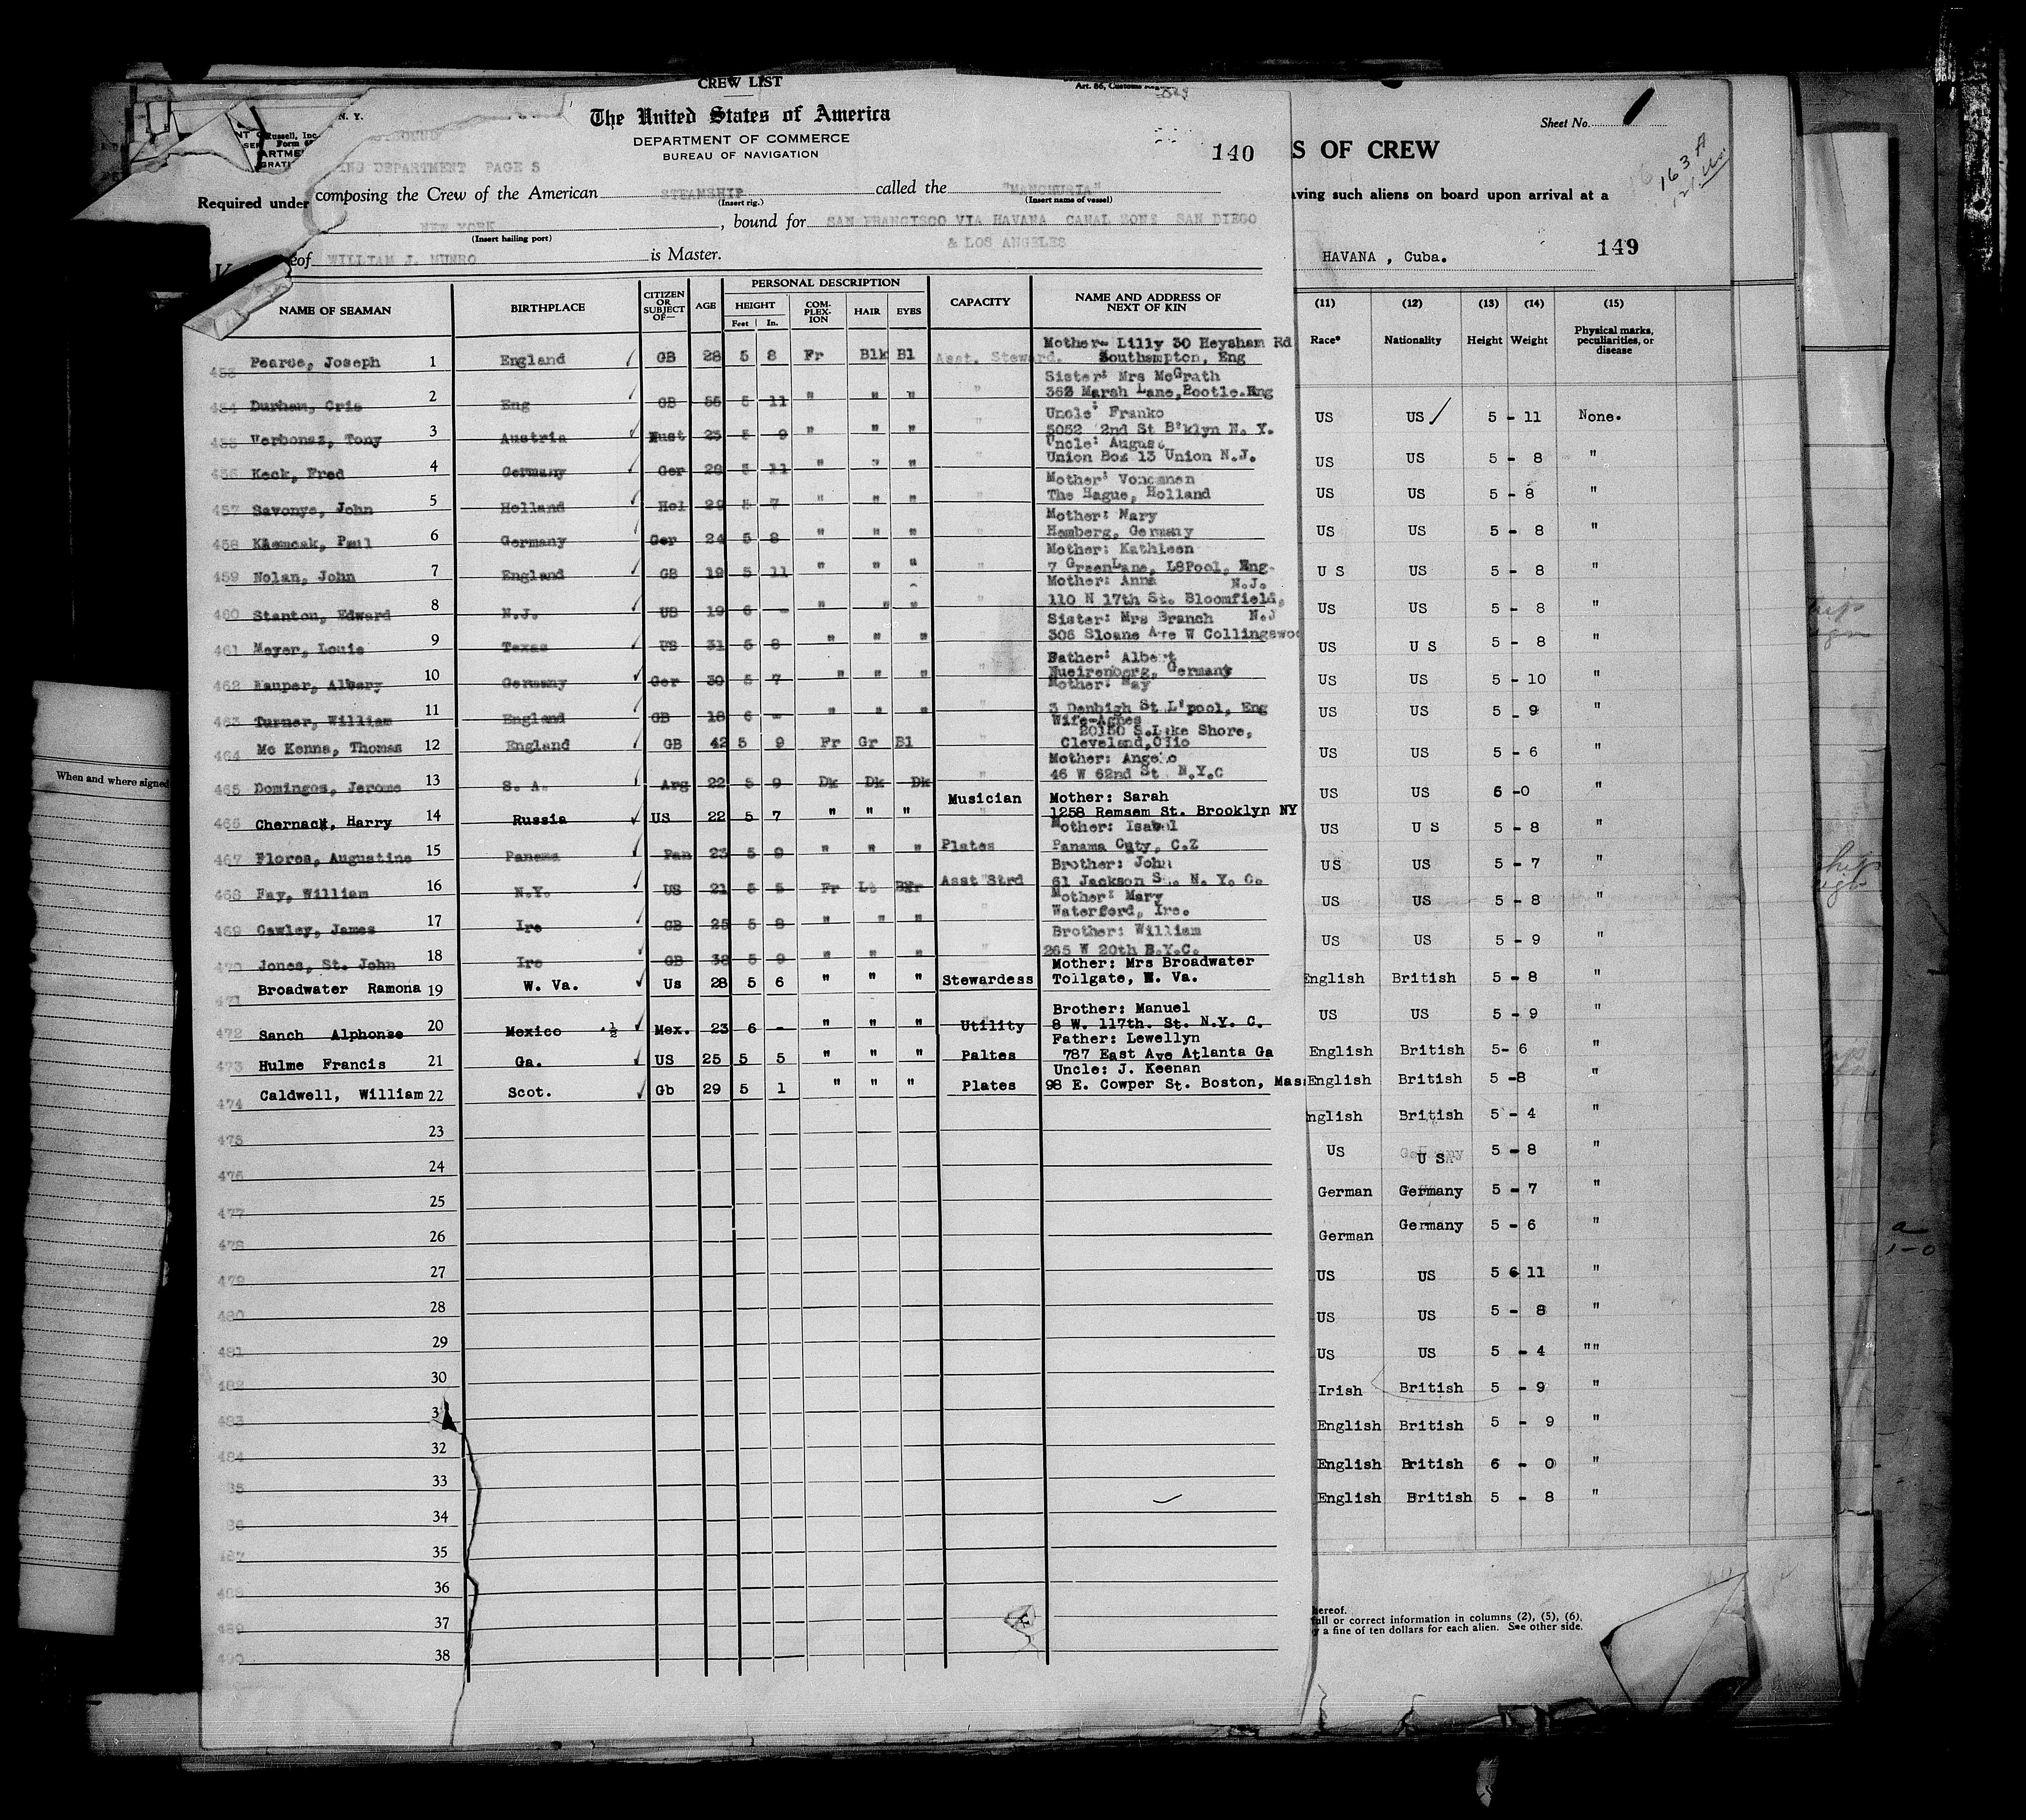 CREW LIST
Art. 86, Customs
N. Y.
The United States of America
DEPARTMENT OF COMMERCE
BUREAU OF NAVIGATION
140
DEPARTMENT PAGE S
Required under composing the Crew of the American STEAMSHIP called the "MANCHURIA"
(Insert rig.) (Insert name of vessel)
NEW YORK, bound for SAN FRANCISCO VIA HAVANA CANAL ZONE SAN DIEGO
(Insert hailing port) & LOS ANGELES
of WILLIAM J. MUNRO is Master.
NAME OF SEAMAN BIRTHPLACE CITIZEN OR SUBJECT OF— AGE PERSONAL DESCRIPTION CAPACITY NAME AND ADDRESS OF NEXT OF KIN
HEIGHT COM-PLEX-ION HAIR EYES
Feet In.
Mother- Lilly 30 Heysham Rd
453 Pearce, Joseph 1 England GB 28 5 8 Fr Blk Bl Asst. Steward. Southampton, Eng
Sister: Mrs McGrath
454 Durhan, Cris 2 Eng GB 55 5 11 " " " " Marsh Lane, Bootle.Eng
Uncle: Franko
455 Verbonaz, Tony 3 Austria Aust 23 5 9 " " " " 5052 2nd St B'klyn N. Y.
Uncle: August
456 Keck, Fred 4 Germany Ger 28 5 11 " " " " Union Box 13 Union N.J.
Mother:
457 Savonye, John 5 Holland Hol 29 5 7 " " " " The Hague, Holland
Mother: Mary
458 Paul 6 Germany Ger 24 5 8 " " " " Hamberg, Germany
Mother: Kathleen
459 Nolan, John 7 England GB 19 5 11 " " " " 7 GreenLane, L8Pool, Eng.
Mother: Anna N.J.
460 Stanton, Edward 8 N.J. US 19 6 - " " " " 110 N 17th St. Bloomfield,
Sister: Mrs Branch N.J
461 Meyer, Louis 9 Texas US 31 5 8 " " " 306 Sloane Ave W Collingswoo
Father: Albert
462 10 Germany Ger 30 5 7 " " " " Nueirenberg, Germany
Mother: May
463 Turner, William 11 England GB 18 6 - " " " " 3 Denbigh St L'pool, Eng
Wife-Agnes
20150 S.Lake Shore,
464 Mc Kenna, Thomas 12 England GB 42 5 9 Fr Gr Bl " Cleveland,Ohio
Mother: Angelo
465 Domingos, Jerome 13 S. A. Arg 22 5 9 Dk Dk Dk " 46 W 62nd St N.Y.C
Musician Mother: Sarah
466 Chernack, Harry 14 Russia US 22 5 7 " " " " 1258 Remsem St. Brooklyn NY
Mother: Isabel
467 Flores, Augustine 15 Panama Pan 23 5 9 " " " Plates Panama Cuty, C.Z
Brother: John
468 Fay, William 16 N.Y. US 21 5 5 Fr Lt Asst Strd 61 Jackson St. N. Y. C.
Mother: Mary
469 Cawley, James 17 Ire GB 25 5 8 " " " " Waterford, Ire.
Brother: William
470 Jones, St. John 18 Ire GB 38 5 9 " " " " 265 W 20th B.Y.C.
Mother: Mrs Broadwater
471 Broadwater Ramona 19 W. Va. Us 28 5 6 " " " Stewardess Tollgate, W. Va.
Brother: Manuel
472 Sanch Alphonse 20 Mexico ½ Mex. 23 6 - " " " Utility 8 W. 117th. St. N.Y. C.
Father: Lewellyn
473 Hulme Francis 21 Ga. US 25 5 5 " " " Paltes 787 East Ave Atlanta Ga
Uncle: J. Keenan
474 Caldwell, William 22 Scot. Gb 29 5 1 " " " Plates 98 E. Cowper St. Boston, Mas
475 23
476 24
477 25
478 26
479 27
480 28
481 29
482 30
483 31
484 32
85 33
86 34
487 35
488 36
489 37
490 38
Sheet No. 1
S OF CREW
163 A
aving such aliens on board upon arrival at a
HAVANA , Cuba. 149
(11) (12) (13) (14) (15)
Race* Nationality Height Weight Physical marks, peculiarities, or disease
US US 5 - 11 None.
US US 5 - 8 "
US US 5 - 8 "
US US 5 - 8 "
U S US 5 - 8 "
US US 5 - 8 "
US U S 5 - 8 "
US US 5 - 10 "
US US 5 - 9 "
US US 5 - 6 "
US US 6 -0 "
US U S 5 - 8 "
US US 5 - 7 "
US US 5 - 8 "
US US 5 - 9 "
English British 5 - 8 "
US US 5 - 9 "
English British 5- 6 "
English British 5 -8 "
nglish British 5 - 4 "
US U S 5 - 8 "
German Germany 5 - 7 "
German Germany 5 - 6 "
US US 5 6 11 "
US US 5 - 8 "
US US 5 - 4 ""
Irish British 5 - 9 "
English British 5 - 9 "
English British 6 - 0 "
English British 5 - 8 "
hereof.
full or correct information in columns (2), (5), (6),
y a fine of ten dollars for each alien. See other side.
When and where signed